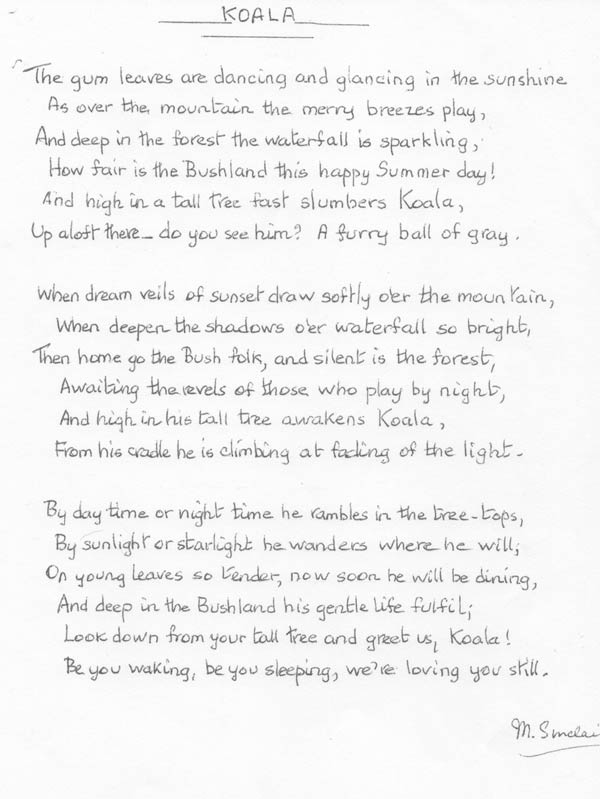 KOALA
The gum leaves are dancing and glancing in the sunshine
As over the mountain the merry breezes play,
And deep in the forest the waterfall is sparkling,
How fair is the Bushland this happy Summer day!
And high in a tall tree fast slumbers Koala,
Up aloft there - do you see him? A furry ball of gray.
When dream veils of sunset draw softly o'er the mountain,
When deepen the shadows o'er waterfall so bright,
Then home go the Bush folk, and silent is the forest,
Awaiting the revels of those who play by night,
And high in his tall tree awakens Koala,
From his cradle he is climbing at fading of the light.
By day time or night time he rambles in the tree-tops,
By sunlight or starlight he wanders where he will;
On young leaves so tender, now soon he will be dining,
And deep in the Bushland his gentle life fulfil;
Look down from your tall tree and greet us, Koala!
Be you waking, be you sleeping, we're loving you still.
M. Sinclai